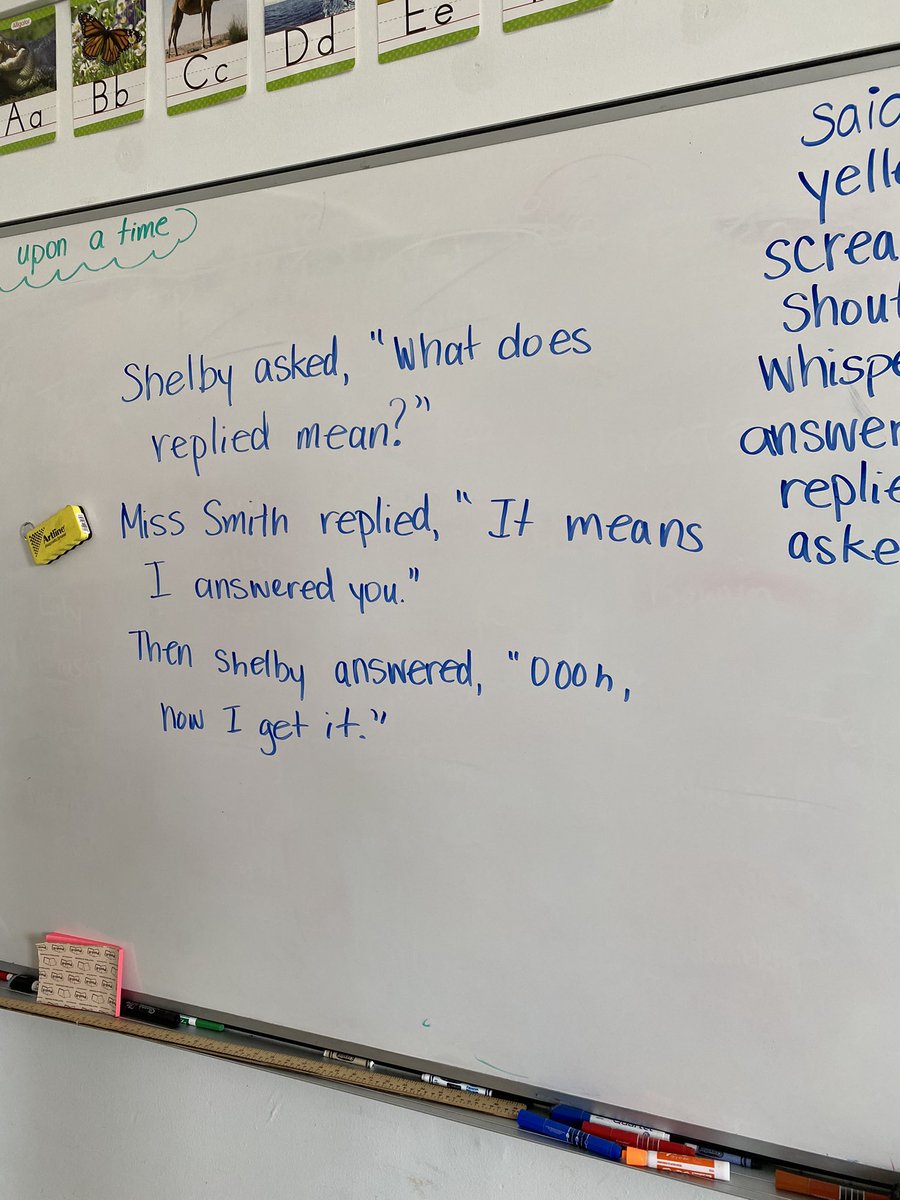 Aa
Bb
Cc
Dd
Ee
upon a time
Shelby asked, "What does
replied mean?"
Miss Smith replied, "It means
I answered you."
Then Shelby answered, "Oooh,
now I get it."
Artline
said
yelle
screa
Shout
whispe
answer
replie
aske